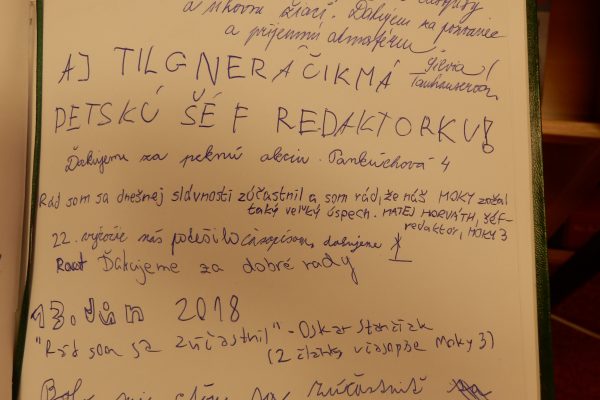 a šikovní žiaci. Ďakujem za pozvanie
a príjemnú atmosféru.
Silvia
AJ TILGNERÁČIK MÁ
DETSKÚ ŠÉF REDAKTORKU!
Ďakujeme za peknú akciu. Pankúchová 4
Rád som sa dnešnej slávnosti zúčastnil a som rád, že náš MOKY zožal
taký veľký úspech. MATEJ HORVÁTH, šéf-
redaktor, MOKY 3
22. výročie nás potešilo časopisom, ďakujeme
Ďakujeme za dobré rady
13. Jún 2018
"Rád som sa zúčastnil" - Oskar
(2 články v časopise Moky 3)
zúčastniť